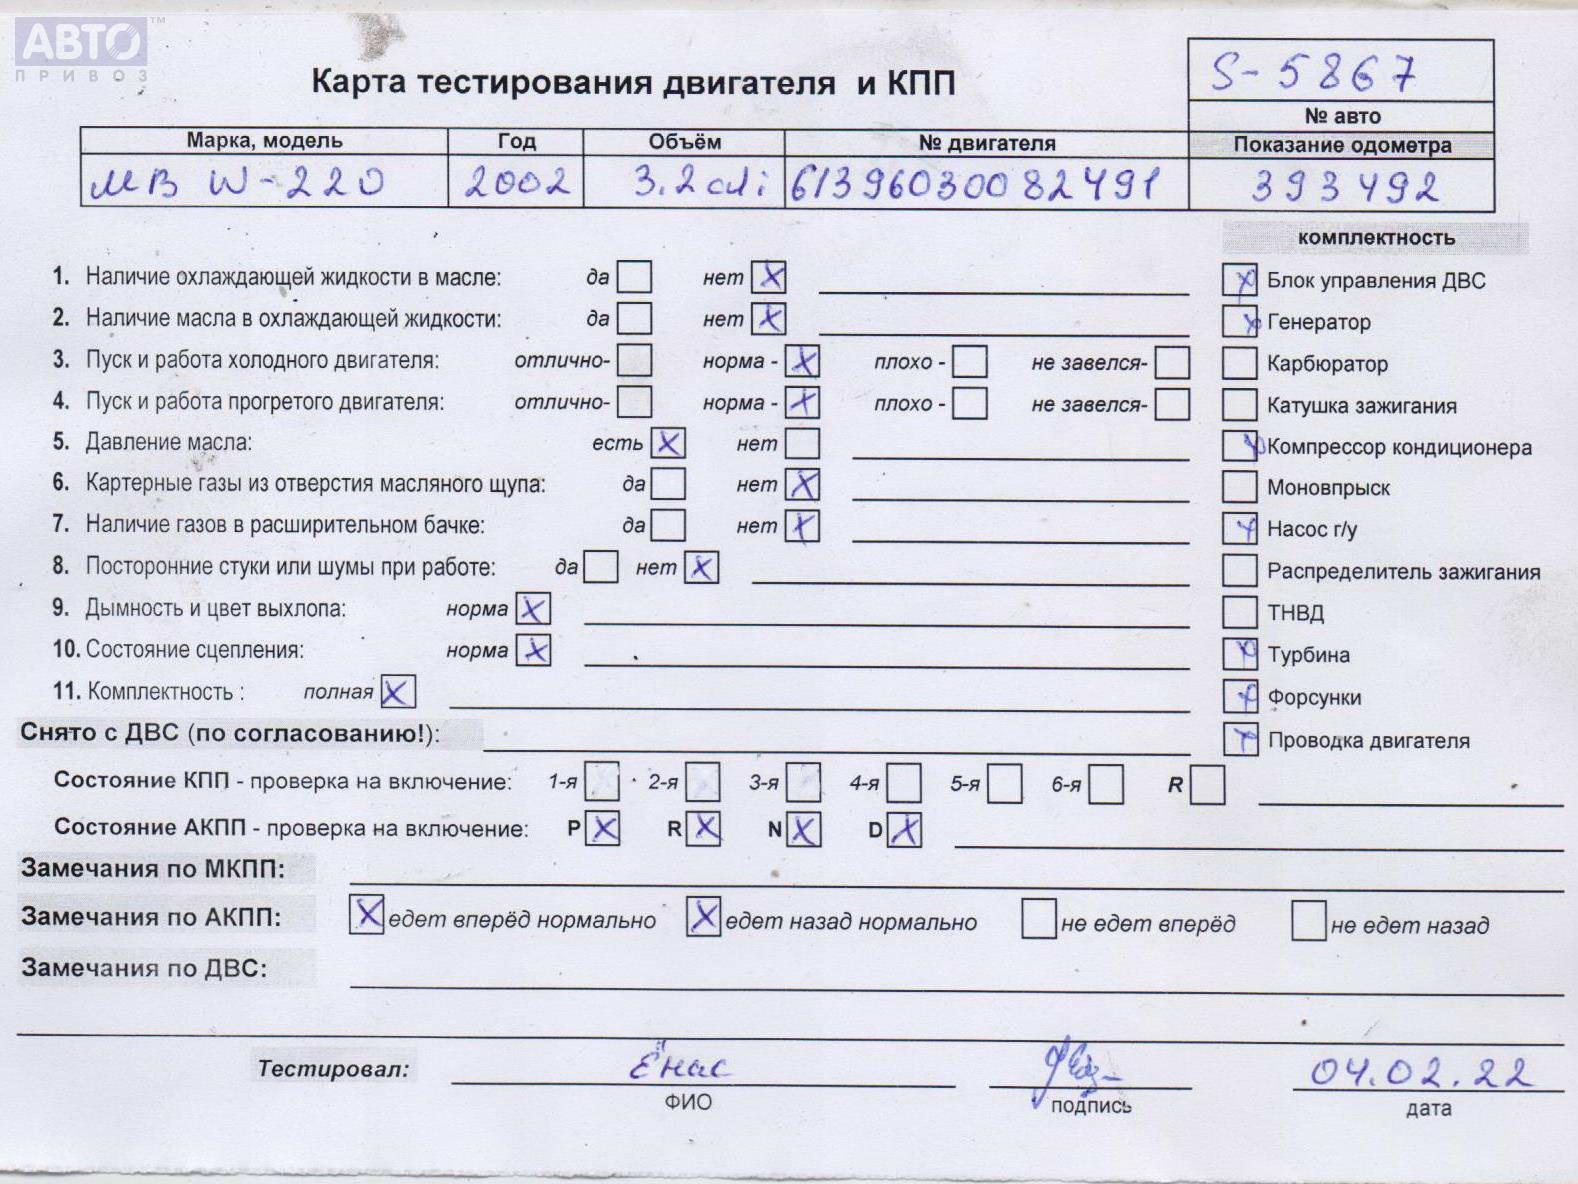 АВТО™
ПРИВОЗ
Карта тестирования двигателя и КПП
S-5867
№ авто
Марка, модель Год Объём № двигателя Показание одометра
МВ W-220 2002 3.2 cdi 61396030082491 393492
комплектность
1. Наличие охлаждающей жидкости в масле: да нет X
2. Наличие масла в охлаждающей жидкости: да нет X
3. Пуск и работа холодного двигателя: отлично- норма - X плохо - не завелся-
4. Пуск и работа прогретого двигателя: отлично- норма - X плохо - не завелся-
5. Давление масла: есть X нет
6. Картерные газы из отверстия масляного щупа: да нет X
7. Наличие газов в расширительном бачке: да нет X
8. Посторонние стуки или шумы при работе: да нет X
9. Дымность и цвет выхлопа: норма X
10. Состояние сцепления: норма X
11. Комплектность : полная X
X Блок управления ДВС
X Генератор
Карбюратор
Катушка зажигания
X Компрессор кондиционера
Моновпрыск
X Насос г/у
Распределитель зажигания
ТНВД
X Турбина
X Форсунки
X Проводка двигателя
Снято с ДВС (по согласованию!):
Состояние КПП - проверка на включение: 1-я 2-я 3-я 4-я 5-я 6-я R
Состояние АКПП - проверка на включение: P X R X N X D X
Замечания по МКПП:
Замечания по АКПП: X едет вперёд нормально X едет назад нормально не едет вперёд не едет назад
Замечания по ДВС:
Тестировал: Ёнас 04.02.22
ФИО подпись дата